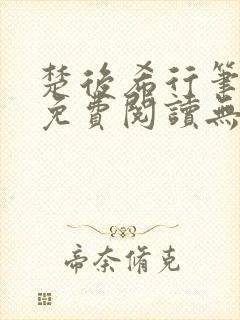 楚後希行筆
免費閱讀無
帝奈脩克